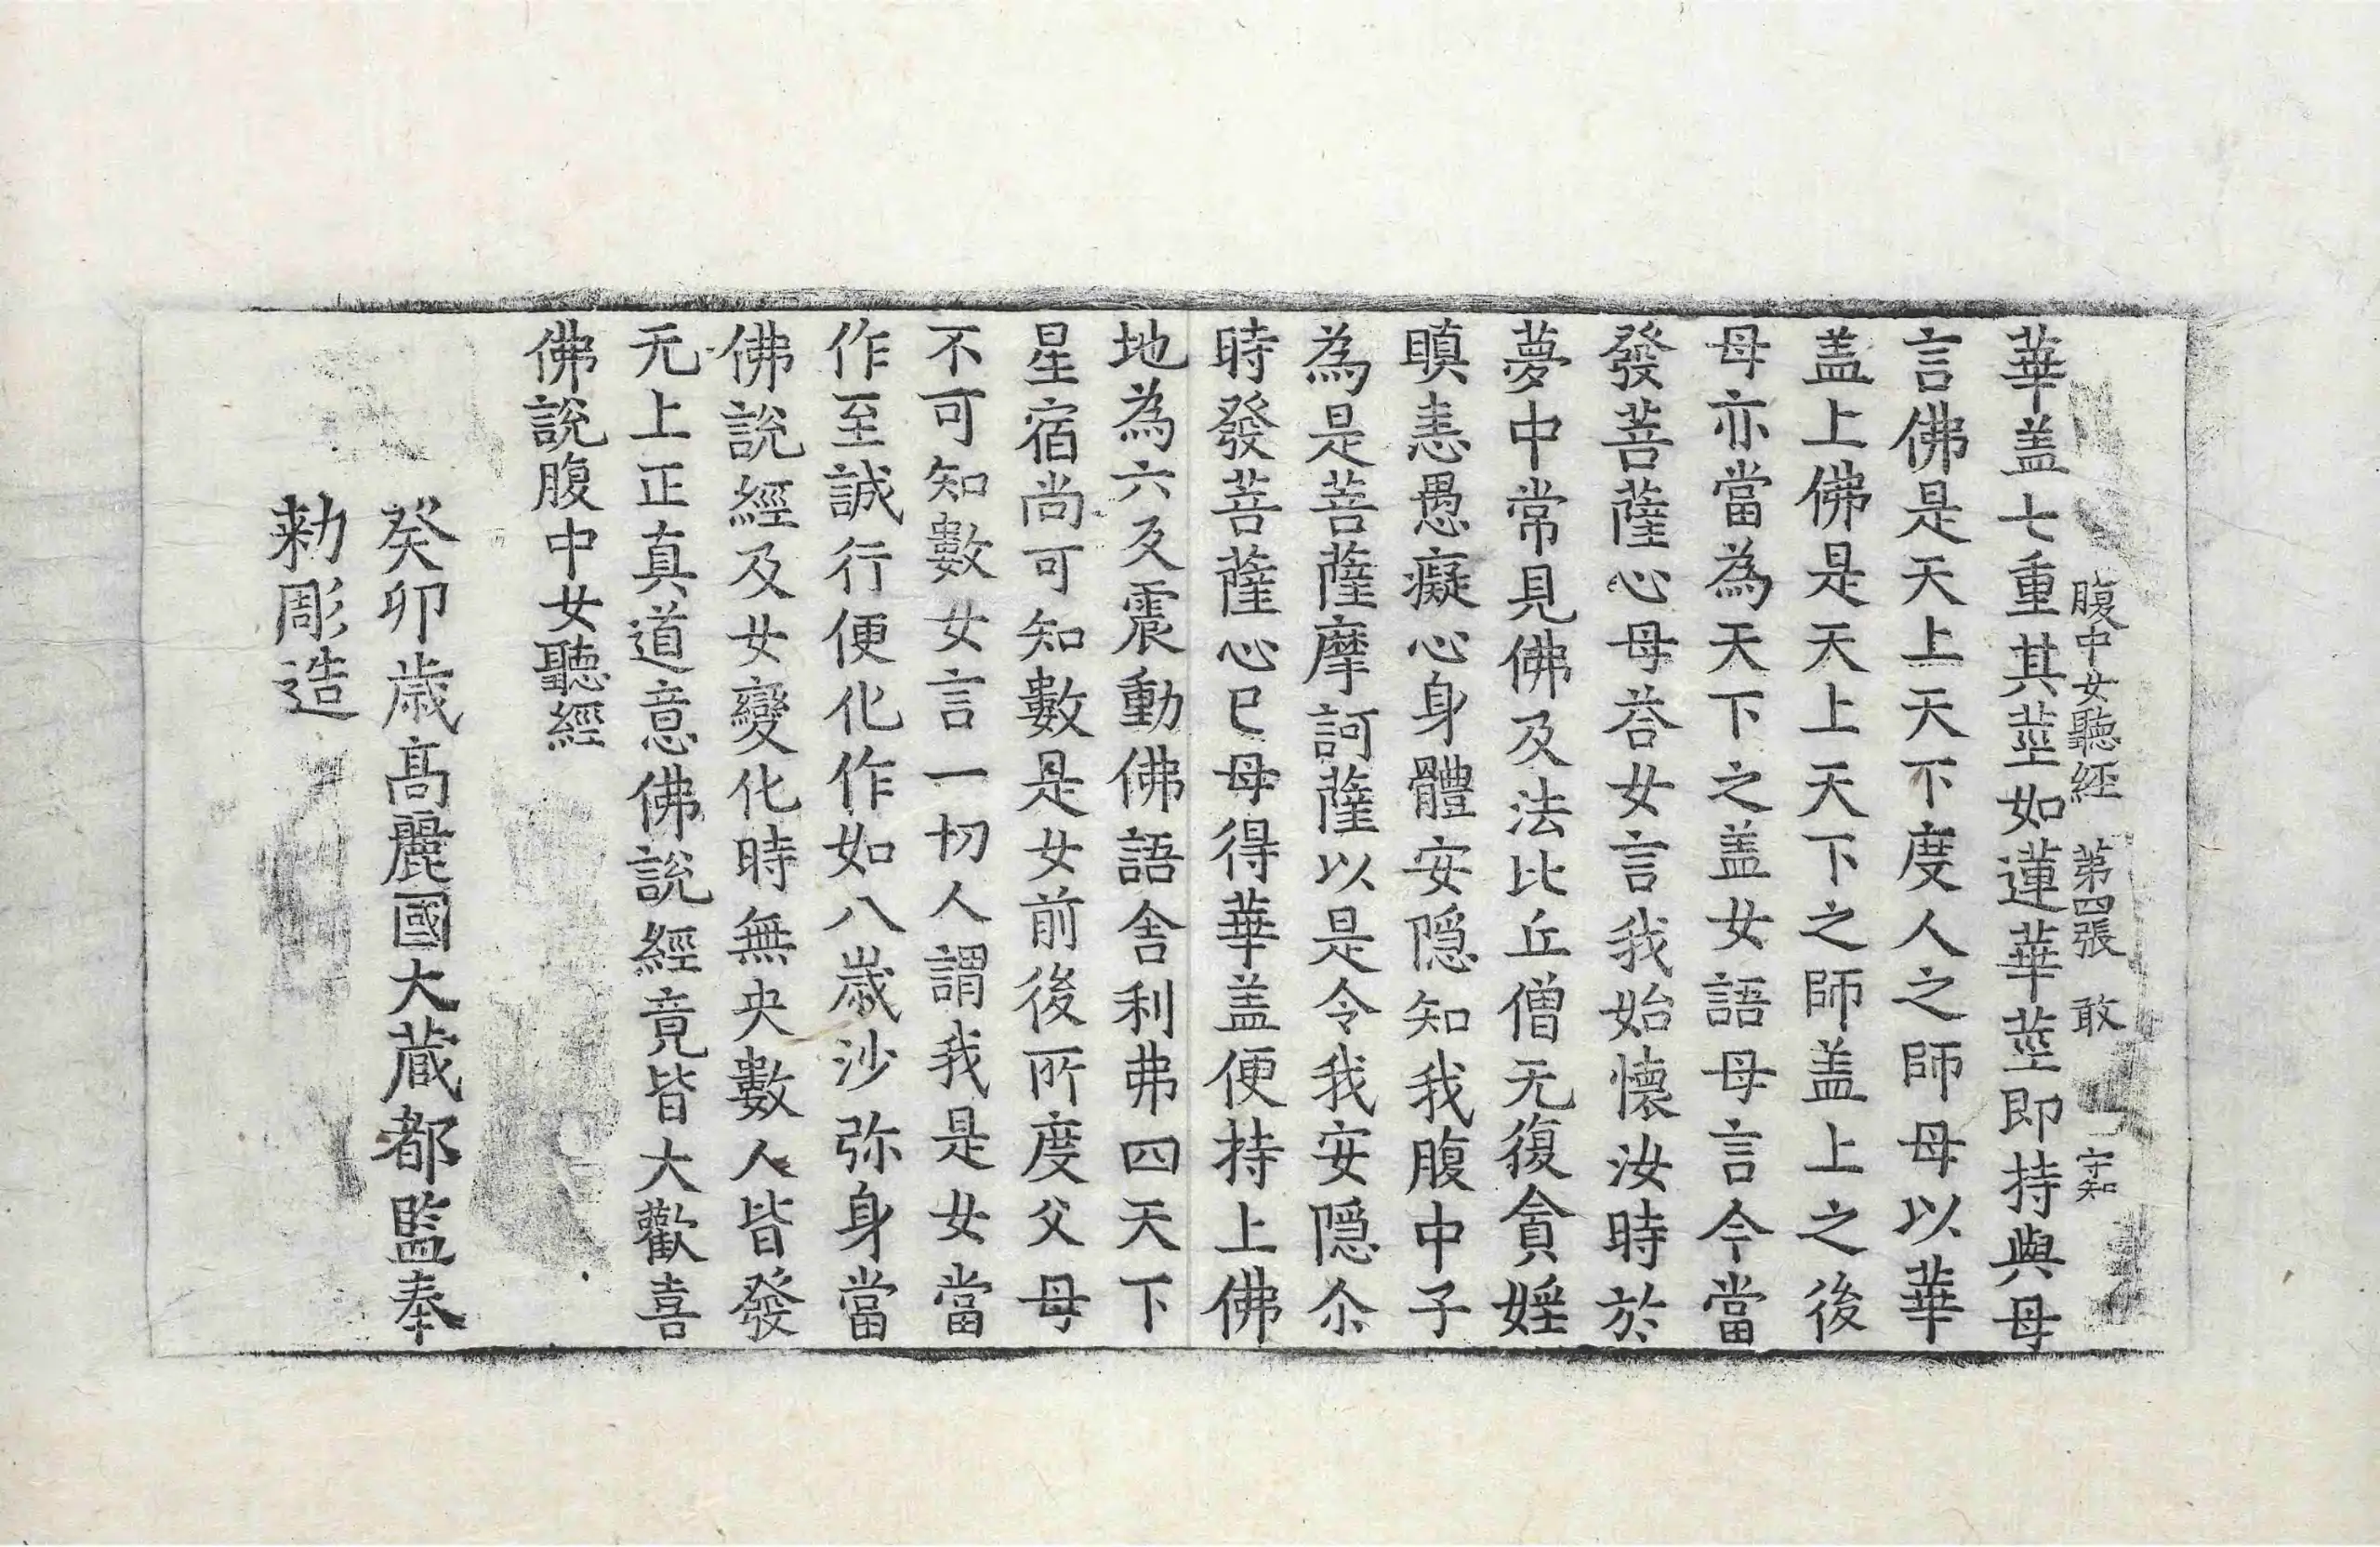 腹中女聽經 第四張 敢 守知
華盖七重其莖如蓮華莖即持與母
言佛是天上天下度人之師母以華
盖上佛是天上天下之師盖上之後
母亦當為天下之盖女語母言今當
發菩薩心母荅女言我始懷汝時於
夢中常見佛及法比丘僧无復貪婬
瞋恚愚癡心身體安隱知我腹中子
為是菩薩摩訶薩以是令我安隱尒
時發菩薩心已母得華盖便持上佛
地為六反震動佛語舍利弗四天下
星宿尚可知數是女前後所度父母
不可知數女言一切人謂我是女當
作至誠行便化作如八歲沙弥身當
佛說經及女變化時無央數人皆發
无上正真道意佛說經竟皆大歡喜
佛說腹中女聽經
癸卯歲高麗國大藏都監奉
勑彫造